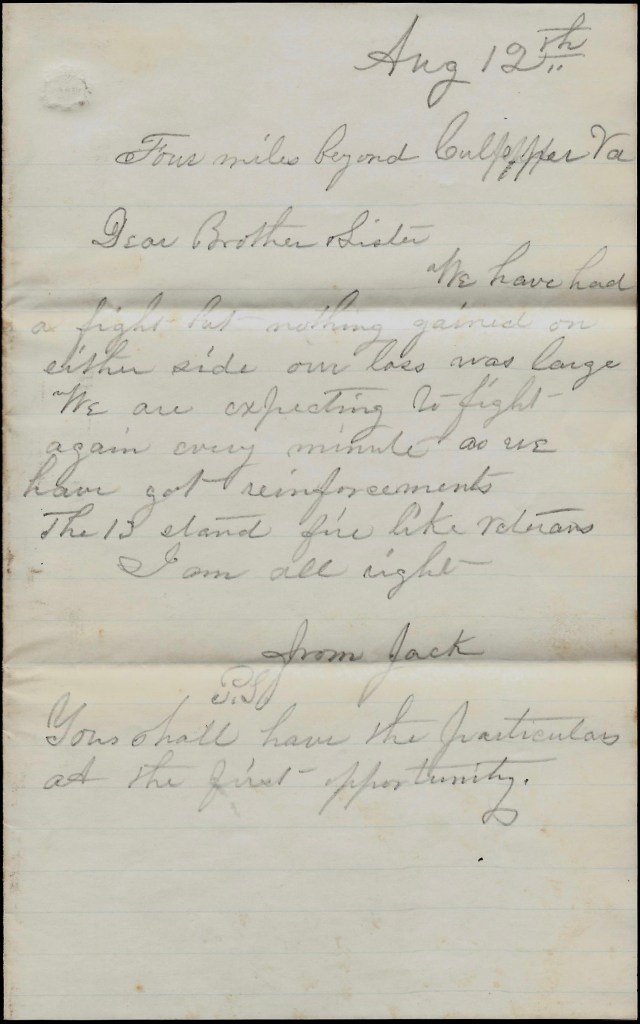 Aug 12th
Four miles beyond Culppper Va
Dear Brother & Sister
We have had
a fight but nothing gained on
either side our loss was large
We are expecting to fight
again every minute as we
have got reinforcements
The 13 stand fire like veterans
I am all right
from Jack
P.S.
You shall have the particulars
at the first opportunity.